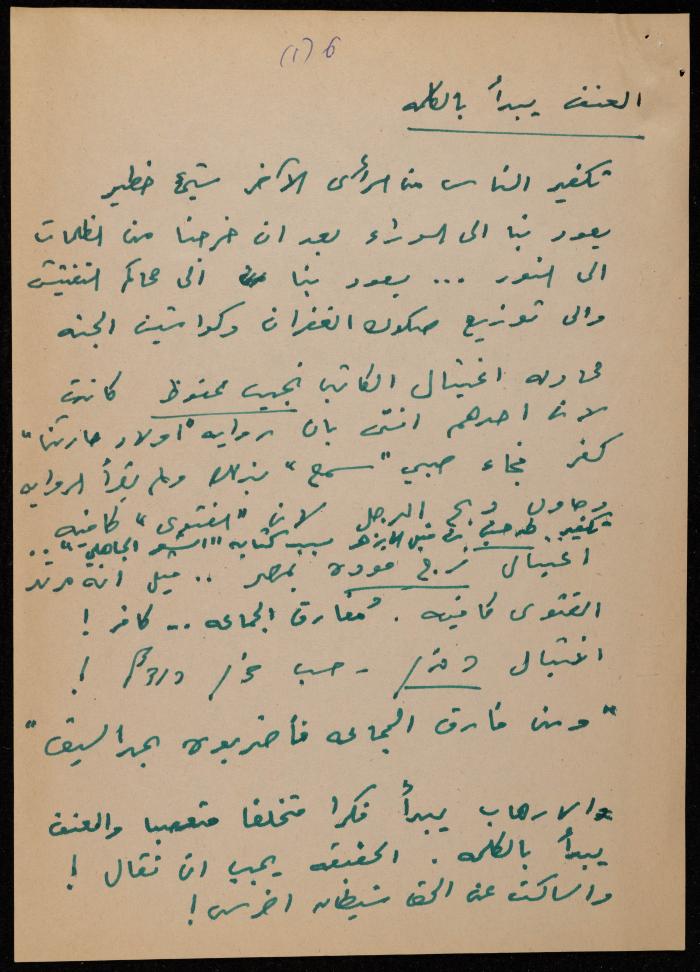 6 (1)
العنف يبدأ بالكلمه
تكفير الناس من الرأى الآخر شيئ خطير
يعود بنا الى الوراء بعد ان خرجنا من الظلمات
الى النور ... يعود بنا الى محاكم التفتيش
والى توزيع صكوك الغفران وكواشين الجنه
محاولة اغتيال الكاتب نجيب محفوظ كانت
لان احدهم افتى بان روايه "اولاد حارتنا"
كفر فجاء صبي "سمع" بذلك ولم يقرأ الروايه
وحاول ذبح الرجل لان "الفتوى" كافيه
تكفير طه حسين من قبل الازهر بسبب كتابه "الشعر الجاهلي" ..
اغتيال فرج فوده بمصر .. قيل انه مرتد
الفتوى كافيه . مُفارق الجماعه .. كافر !
اغتيال - حسب !
"ومن فارق الجماعه فأضربوه بحد السيف"
والارهاب يبدأ فكرا متخلفا متعصبا والعنف
يبدأ بالكلمه . الحقيقه يجب ان تقال !
والساكت عن الحق شيطان اخرس !